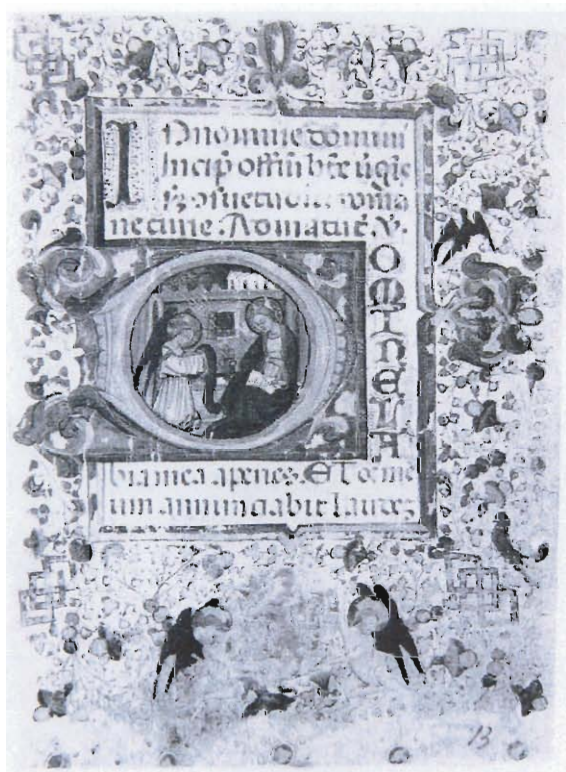 IN nomine domini
Incip offiu bte
roma
ne curie. Ad matut. V.
DOMINE LA
bia mea aperies. Et os me
um annunciabit laudez
13